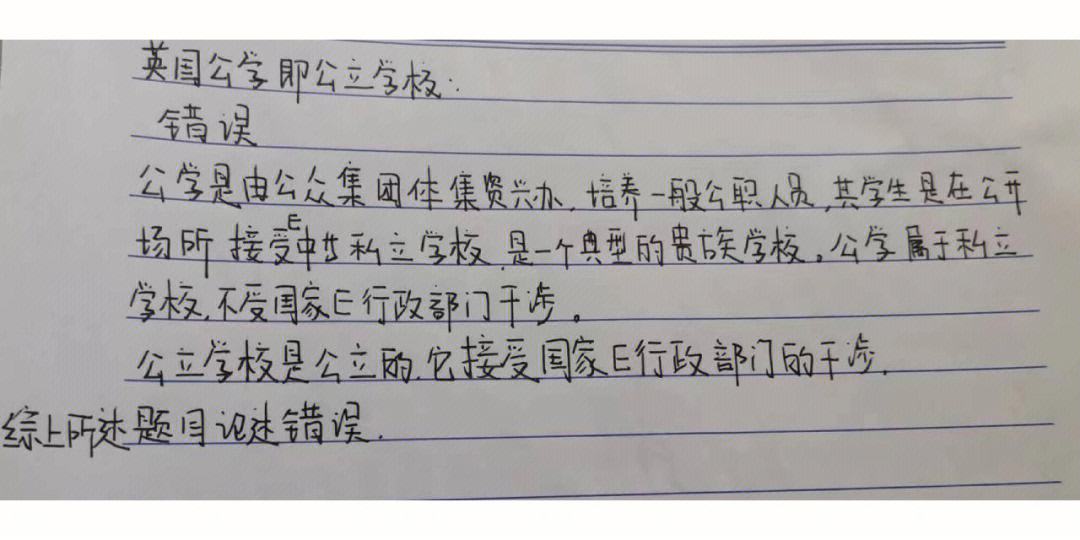 英国公学即公立学校:
错误
公学是由公众集团体集资兴办,培养一般公职人员,其学生是在公开
场所接受E的私立学校,是一个典型的贵族学校。公学属于私立
学校,不受国家E行政部门干涉。
公立学校是公立的,它接受国家E行政部门的干涉.
综上所述题目论述错误.